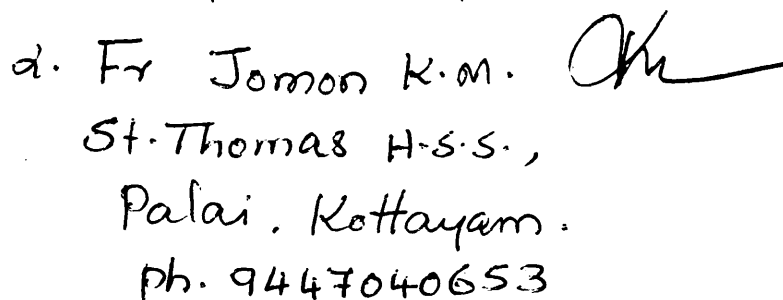 2. Fr Jomon K.M.
St. Thomas H.S.S.,
Palai. Kottayam.
ph. 9447040653